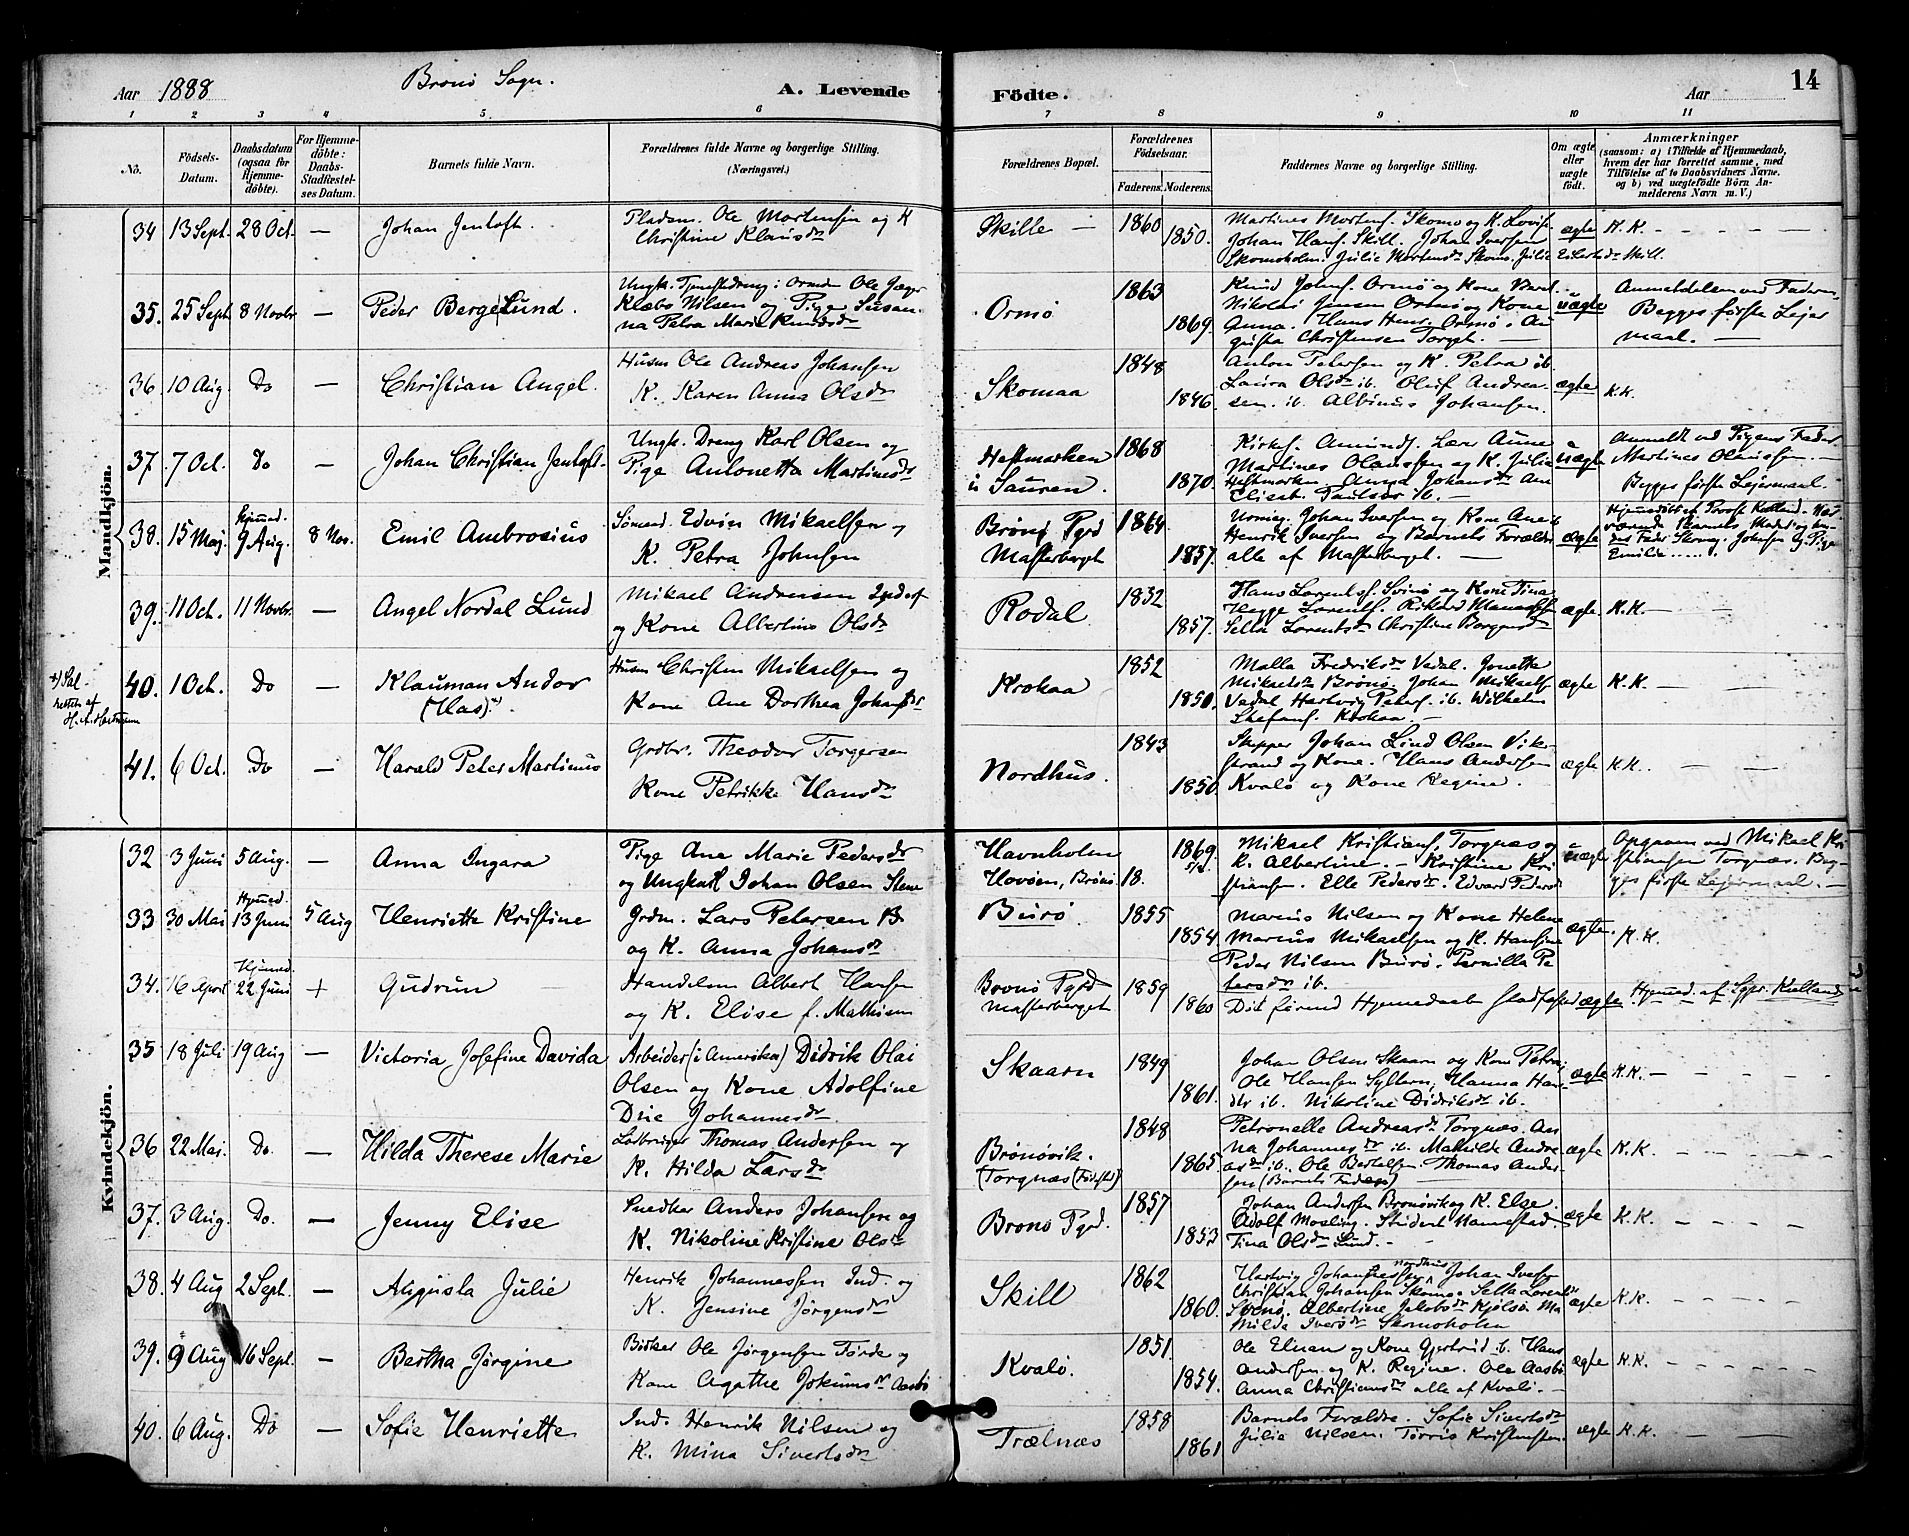 Aar 1888
Brønø Sogn.
A. Levende
Födte.
Aar
14
1 2 3 4 5 6 7 8 9 10 11
No.
Födsels-Datum.
Daabsdatum (ogsaa for Hjemme-döbte).
For Hjemme-döbte: Daabs-Stadfæstel-ses Datum.
Barnets fulde Navn.
Forældrenes fulde Navne og borgerlige Stilling.
(Næringsvei.)
Forældrenes Bopæl.
Forældrenes Födselsaar.
Faderens. Moderens.
Faddernes Navne og borgerlige Stilling.
Om ægte eller uægte födt.
Anmærkninger
(saasom: a) i Tilfælde af Hjemmedaab, hvem der har forrettet samme, med Tilföielse af to Daabsvidners Navne. og b) ved uægtefödte Börn An-melderens Navn m. V.)
Mandkjön.
34 13 Sept. 28 Oct. — Johan Jentoft.
Pladsm. Ole Mortensen og K
Christine Klausdr
Skille — 1860 1850.
Johan Hans. Skill. Johan Iversen
ægte K.K. — — — —
35. 25 Sept 8 Novbr — Peder Berge Lund.
Klæbo Nilsen og Pige Susan-
na Petra Marie Knudsdr
Ormø 1863 1869.
Knud Johns. Ormø og Kone
Nikolai Jensen Ormø og Kone
Anna. Hans Henr. Ormø. Au
gusta Christensen Torget. —
uægte
Anmeldelsen ved Faderen.
Begges første Leier
maal. —
36 10 Aug. Do — Christian Angel.
Husm Ole Andreas Johansen
K. Karen Anna Olsdr
Skomaa 1848 1846.
Anton Petersen og K. Petra ib.
Laura Olsdr ib. Oluf Andrea-
sen. ib. Albinus Johansen.
ægte K.K.
37. 7 Oct. Do — Johan Christian Jentoft.
Ungk. Dreng Karl Olsen og
Pige Antonetta Martinusdr
Heltmarken
i Sauren. 1868 1870.
Martines Olaussen og K. Julie
Heltmarken. Anna Johansdr
uægte
Anmeldt ved Pigens Fader
Martines Olaussen. —
Begges første Leiermaal.
38. 15 Maj. Hjemmed. 9 Aug. 8 Nov. Emil Ambrosius
Sømand. Edvin Mikaelsen og
K. Petra Johnsen
Brønø Pgrd 1864 1857.
Johan Iversen og Kone Ane
Henrik Iversen og Barnets Foræld.
alle af
ægte
39. 11 Oct. 11 Novbr. — Angel Nordal Lund
Mikael Andreasen
og Kone Albertine Olsdr
Rodal 1832 1857.
Hans Lorents. Svinø og Kone Tina
ægte. K.K. — —
40. 1 Oct. Do — Klauman Andor
(Klas) x).
x)
rettet af
Husm Christen Mikaelsen og
Kone Ane Dorthea Johansdr
Krokaa 1852 1850.
Malla Fredriksdr Vedal. Jonetta
Mikaelsdr Brønø. Johan Mikaels.
Vedal Hartvig Peters. ib. Wilhelm
Stefans. Krokaa. —
ægte K.K. — —
41. 6 Oct. Do — Harald Peter Martinus
Grdbr. Theodor Torgersen
Kone Petrikke Hansdr
Nordhus. 1843 1850.
Skipper Johan Lind Olsen Vik-
strand og Kone. Hans Andersen
Kvalø og Kone Regine.
ægte K.K. — —
Kvindekjön.
32 3 Juni 5 Aug. — Anna Ingara
Pige Ane Marie Pedersdr
og Ungkarl Johan Olsen
Havnholmen
Hovøen, Brønø 1869 18.
Mikael Kristians. Torgnæs og
K. Albertine. — Kristine Kri
stiansen. Elle Pedersdr. Edvard Peders
uægte
Opgaven ved Mikael Kri
stiansen Torgnæs. Beg-
ges første Leiermaal. —
33 30 Mai Hjemmed. 13 Juni 5 Aug Henriette Kristine
Grdm. Lars Petersen B
og K. Anna Johansdr
Burø 1855 1854
Marius Nilsen og Kone Helene
Marius Mikaelsen og K. Hansine
Peder Nilsen Burø. Pernilla Pe
tersdr ib.
ægte. K.K.
34. 16 April Hjemmed. 22 Juni + Gudrun
Handelsm Albert Hansen
og K. Elise f. Mathisen
Brønø Pgrd 1859 1860
ægte.
Hjemmed. af
35 18 Juli 19 Aug — Victoria Josefine Davida
Arbeider (i Amerika) Didrik Olai
Olsen og Kone Adolfine
Johannesdr
Skaarn 1849 1861.
Johan Olsen Skaarn og Kone Petra,
Ole Hansen Syltern, Hanna Han-
dtr ib. Nikoline Didriksdr ib.
ægte K.K. — — — —
36 22 Mai. Do. — Hilda Therese Marie
Thomas Andersen og
K. Hilda Larsdr
Brønøvik.
(Torgnæs (Fødested) 1848 1865
Petronelle Andreasdr Torgnæs. An
na Johannesdr ib. Mathilde Andre
asdr ib. Ole Bertelsen. Thomas Ander-
sen (Barnets Fader) —
ægte K.K. — — — —
37. 3 Aug. Do. — Jenny Elise
Snedker Anders Johansen og
K. Nikoline Kristine Olsdr
Brønø Pgrd. 1857 1853
Johan Andersen Brønøvik og K. Else.
Adolf Mosling. Student
Tina Olsdr Lund. —
ægte K.K. — — — —
38. 4 Aug 2 Sept. — Augusta Julie
Henrik Johannessen Ind. og
K. Jensine Jørgensdr
Skill 1862 1860.
Hartvig Johannessen Nordhus, Johan Ivers.
Christian Johansen Skomo. Sella Lorentsdr
Svinø. Albertine Jakobsdr
Milda Iversdr Skomoholm
ægte K.K. — — — —
39. 9 Aug 16 Sept. — Bertha Jørgine
Bødker Ole JørgensenFørde og
Kone Agathe Jokumsdr Aasbø
Kvalø. 1851. 1854.
Ole Elnan og Kone Gjertrud ib. Hans
Andersen og K. Regine. Ole Aasbø
Anna Christiansdr alle af Kvalø. —
ægte K.K. — — — —
40. 6 Aug. Do — Sofie Henriette
Ind. Henrik Nilsen og
K. Mina Sivertsdr
Trælnæs 1858 1861
Barnets Forældre. Sofie Sivertsdr
Julie Nilsen. Tørris Kristensen.
ægte K.K. — — —